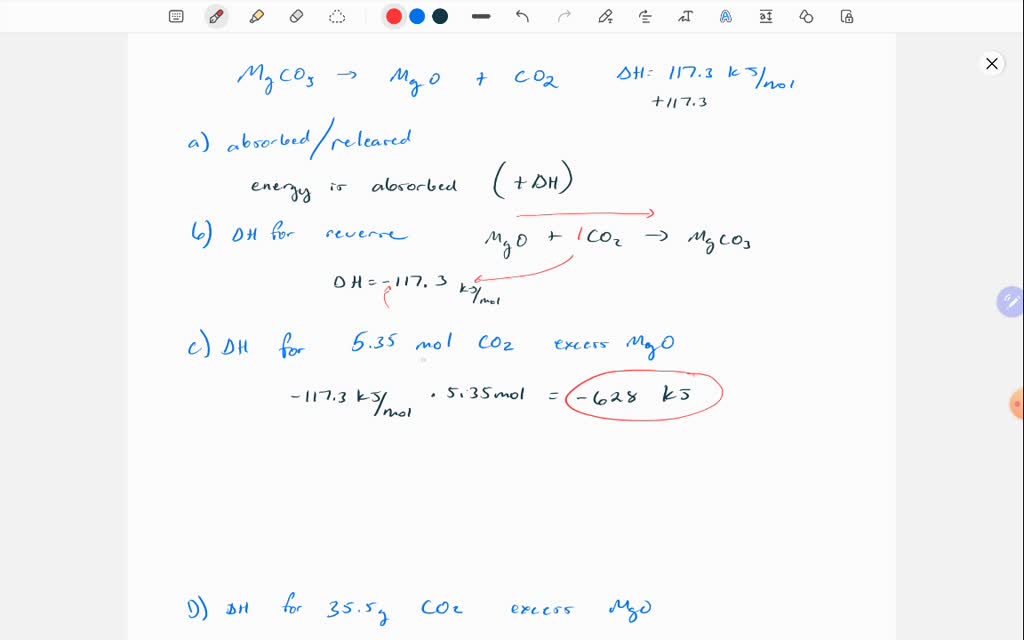 MgCO3 → MgO + CO2 DH: 117.3 kJ/mol
+117.3
a) absorbed/released
energy is absorbed (+DH)
b) DH for reverse MgO + 1CO2 → MgCO3
DH = -117.3 kJ/mol
c) DH for 5.35 mol CO2 excess MgO
-117.3 kJ/mol · 5.35 mol = -628 kJ
D) DH for 35.5g CO2 excess MgO